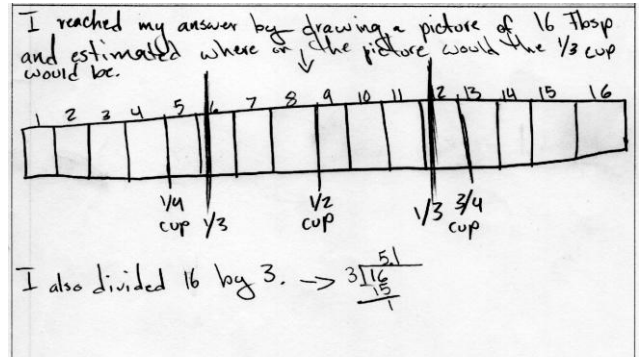 I reached my answer by drawing a picture of 16 Tbsp
and estimated where on the picture would the 1/3 cup
would be.
1 2 3 4 5 6 7 8 9 10 11 12 13 14 15 16
1/4 cup 1/3 1/2 cup 1/3 3/4 cup
I also divided 16 by 3. → 5.1
3 16
15
1